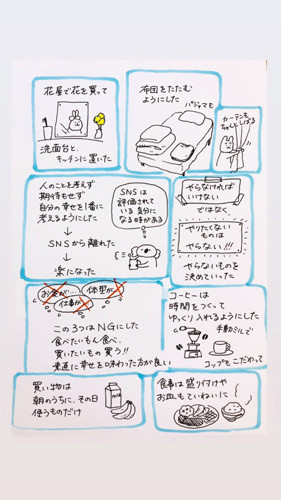 花屋で花を買って
洗面台と、
キッチンに置いた
布団をたたむ
ようにした
パジャマも
カーテンも
ちゃんとしばる
人のことを考えず
期待もせず
自分の幸せを1番に
考えるようにした
↓
SNSから離れた
↓
楽になった
SNSは
評価されて
いる自分に
なる時がある
やらなければ
いけない
ではなく、
やりたくない
ものは
やらない!!!
やらないものを
決めていった
お金が…
体型が…
仕事が…
この3つはNGにした
食べたいもん食べ、
買いたいもの買う!!
素直に幸せを味わった方が良い
コーヒーは
時間をつくって
ゆっくり入れるようにした
手動ミルで
コップもこだわって
買い物は
朝のうちに、その日
使うものだけ
MILK
食事は盛り付けや
お皿もていねいに